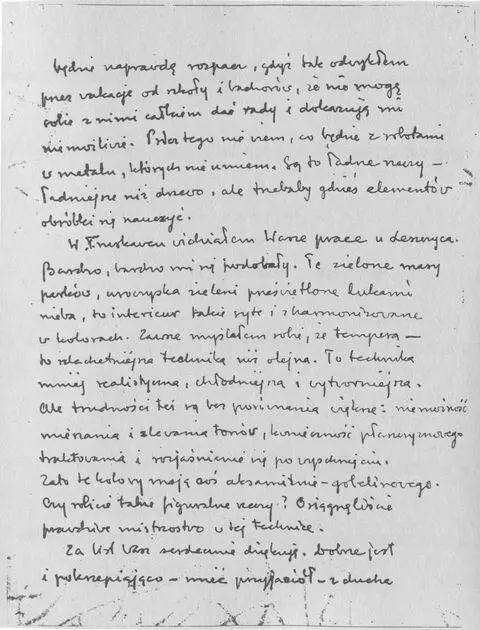 będzie naprawdę rozpacz, gdyż tak odwykłem
przez wakacje od szkoły i bachorów, że nie mogę
sobie z nimi całkiem dać rady i dokazują mi
niemożliwie. Prócz tego nie wiem, co będzie z robotami
w metalu, których nie umiem. Są to ładne rzeczy –
ładniejsze niż drzewo, ale trzebaby gdzieś elementów
obróbki się nauczyć.
W Truskawcu widziałem Wasze prace u
Bardzo, bardzo mi się podobały. Te zielone masy
parków, uroczyska zieleni prześwietlone lukami
nieba, to interieur takie syte i zharmonizowane
w kolorach. Zawsze myślałem sobie, że tempera –
to szlachetniejsza technika niż olejna. To technika
mniej realistyczna, chłodniejsza i wytworniejsza.
Ale trudności też są bez porównania większe: niemożność
mieszania i zlewania tonów, konieczność płaszczyznowego
traktowania i rozjaśnianie się po wyschnięciu.
Zato te kolory mają coś aksamitnie-gobelinowego.
Czy robicie także figuralne rzeczy? Osiągnęliście
prawdziwe mistrzostwo w tej technice.
Za list Wasz serdecznie dziękuję. Dobrze jest
i pokrzepiająco – mieć przyjaciół – z ducha